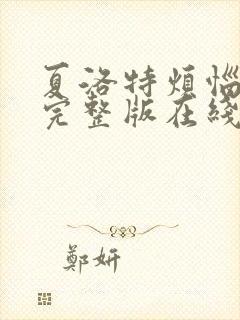 夏洛特烦惱
完整版在綫
鄭妍